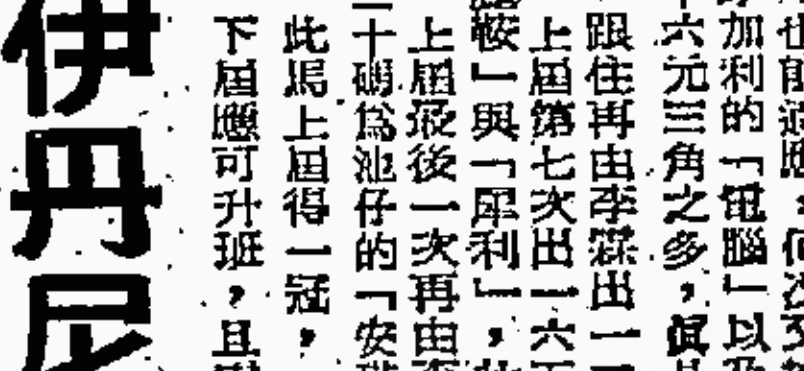 加利的「電腦」以
六元三角之多,眞
跟住再由李霖出一
上屆第七次出一六
鞍」與「犀利」,
上屆最後一次再由
十碼爲池仔的「安
此馬上屆得一冠,
下屆應可升班,且
伊丹尼